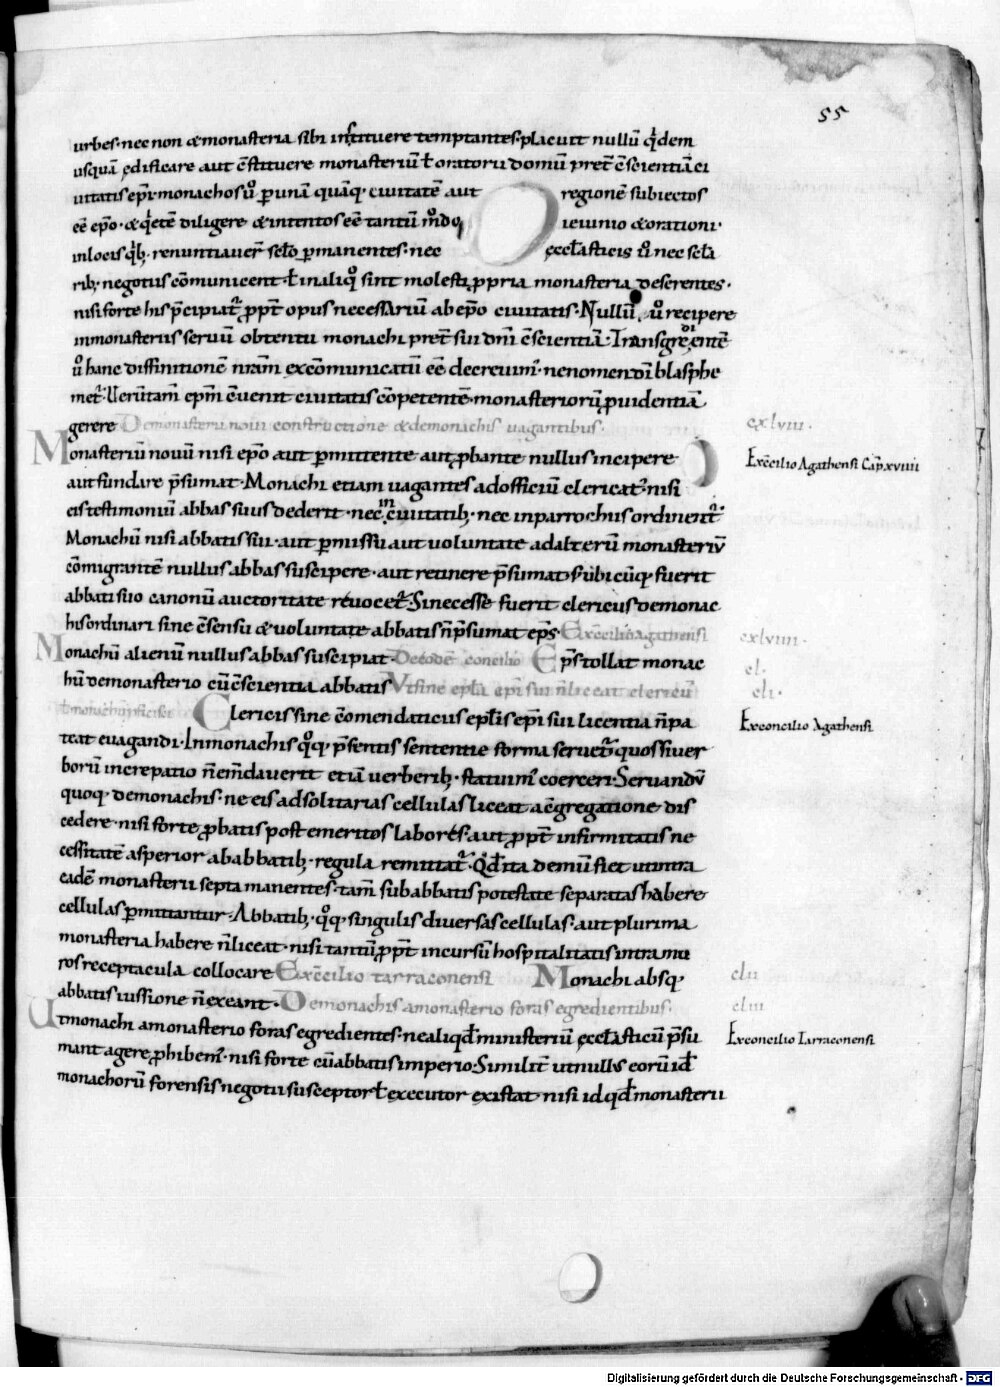 55
urbes· nec non & monasteria sibi instituere temptantes· placuit nullū qͥdem
usquā ędificare aut c̄stituere monasteriū ł oratorii domū pret̄ c̄scientiā ci
uitatis ep̄i· monachos ū̊ p̱ unā quāq; ciuitatē aut regionē subiectos
eē ep̄o· & qͥetē diligere & intentos eē tantū m̊do ieiunio & orationi·
in locis qͥb; renuntiauer̄ sc̄lo p̱manentes· nec ęccl̄asticis ū̊ nec sc̄la
rib; negotiis cōmunicent· ł in aliqͦ sint molesti ꝓpria monasteria deserentes·
nisi forte his p̄cipiat᷑ ꝓpt̄ opus necessariū ab ep̄o ciuitatis· Nullū ū̊ recipere
in monasteriis seruū obtentu monachi pret̄ sui dn̄i c̄scientiā· Transgredientē
ū̊ hanc diffinitionē nr̄am excōmunicatū eē decreuim᷒· ne nomen dī blasphe
met᷑· Uerūtam̄ ep̄m c̄uenit ciuitatis cōpetentē monasteriorū ꝓuidentiā
gerere De monasterii noui constructione & de monachis uagantibus· cxlviii·
Monasteriū nouū nisi ep̄o aut p̱mittente aut ꝓbante nullus incipere Ex c̄cilio Agathensi Cap̄ xviiii
aut fundare p̄sumat· Monachi etiam uagantes ad officiū clericat᷒ nisi
eis testimoniū abbas suus dederit· nec in ciuitatib; nec in parrochiis ordinent᷑·
Monachū nisi abbatis sui· aut p̱missu aut uoluntate ad alterū monasteriū
cōmigrantē nullus abbas suscipere· aut retinere p̄sumat s; ubicūq; fuerit
abbati suo canonū auctoritate reuocet᷑· Si necesse fuerit clericus de monac
his ordinari sine c̄sensu & uoluntate abbatis n̄ p̄sumat ep̄s· Ex c̄cilio agathensi cxlviiii·
Monachū alienū nullus abbas suscipiat· De eodē concilio Ep̄s tollat monac cl·
hū de monasterio cū c̄scientia abbatis Ut sine epl̄a ep̄i sui n̄ liceat clericū cli·
Clericis sine c̄omendaticiis epl̄is ep̄i sui licentia n̄ pa Ex concilio Agathensi
teat euagandi· In monachis qͦq; p̄sentis sententie forma seruet᷑ quos si uer
borū increpatio n̄ em̄dauerit etiā uerberib; statuim᷒ coerceri· Seruandū
quoq; de monachis· ne eis ad solitarias cellulas liceat a c̄gregatione dis
cedere· nisi forte ꝓbatis post emeritos labores· aut ꝓpt̄ infirmitatis ne
cessitatē asperior ab abbatib; regula remittat᷑· Qd̄ ita demū fiet ut intra
eadē monasterii septa manentes· tam̄ sub abbatis potestate separatas habere
cellulas p̱mittantur· Abbatib; qͦq; singulis diuersas cellulas· aut plurima
monasteria habere n̄ liceat· nisi tantū ꝓpt̄ incursū hospitalitatis intra mu
ros receptacula collocare Ex c̄cilio tarraconensi Monachi absq; clii
abbatis iussione n̄ exeant· De monachis a monasterio foras egredientibus· cliii
Ut monachi a monasterio foras egredientes· ne aliqd̄ ministeriū ęccl̄asticū p̄su Ex concilio Tarraconensi
mant agere ꝓhibem᷒· nisi forte cū abbatis imperio· Similit̄ ut nullus eorū id ÷
monachorū forensis negotii susceptor ł executor existat nisi id qd̄ monasterii